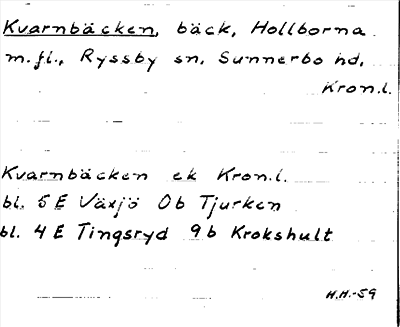 Kvarnbäcken, bäck, Hollborna
m.fl., Ryssby sn, Sunnerbo hd,
Kron.l.
Kvarnbäcken ek Kron.l.
bl. 5E Växjö 0b Tjurken
bl. 4E Tingsryd 9b Krokshult
H.H.-59